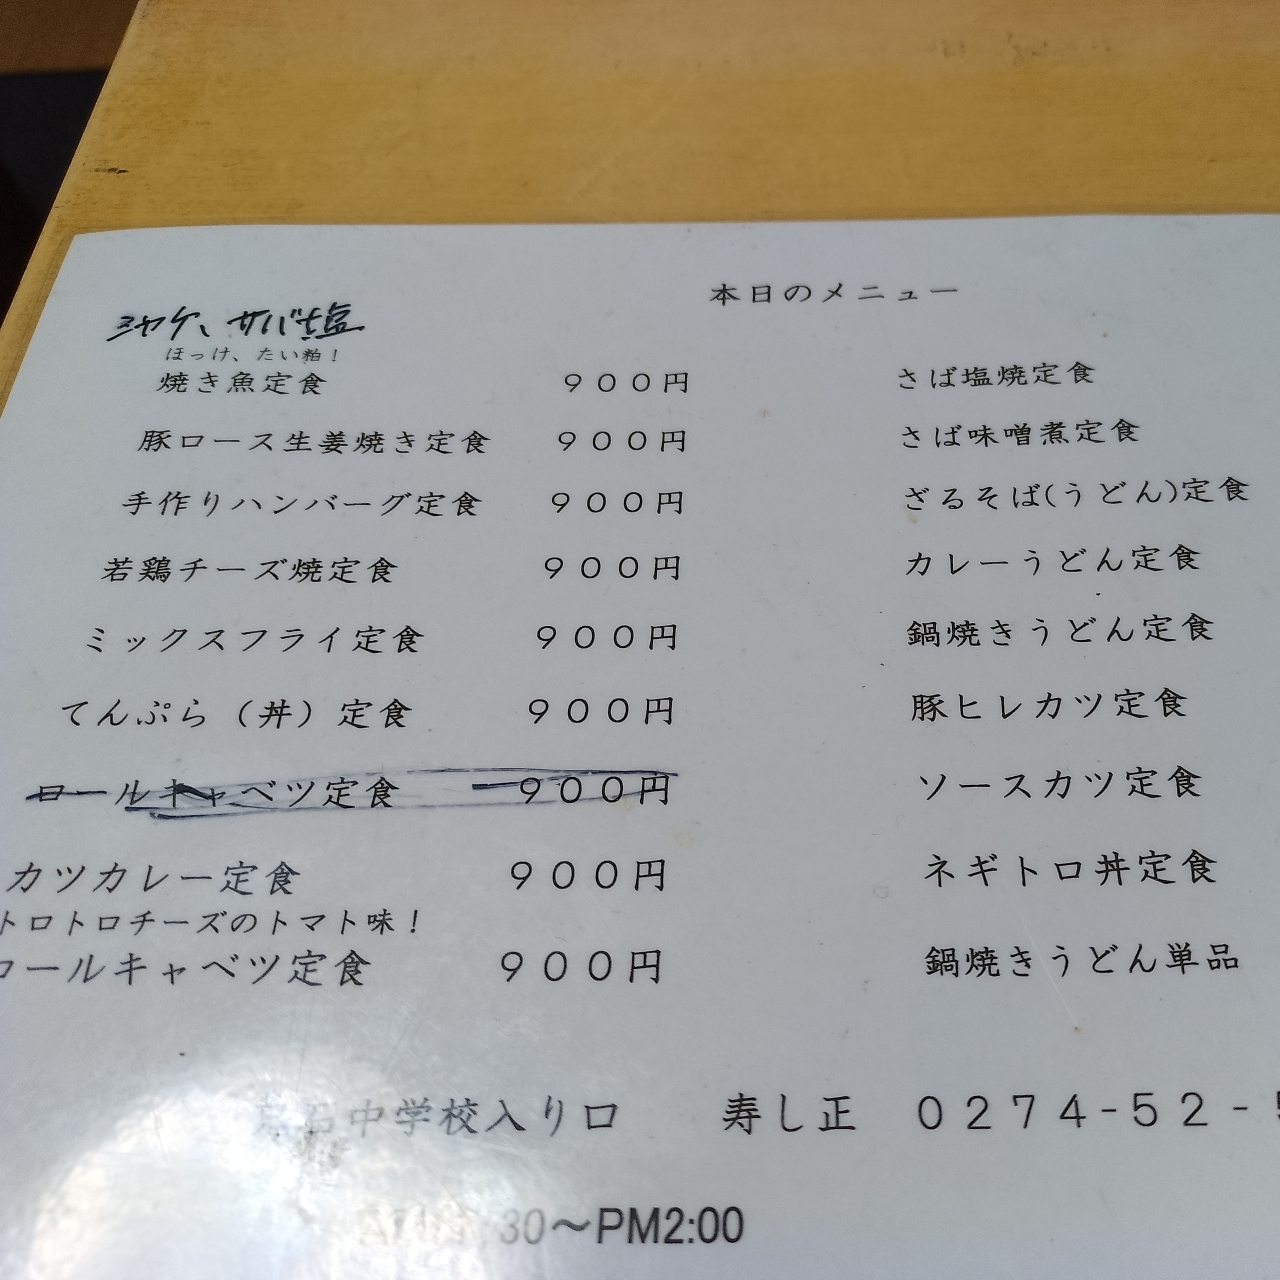 本日のメニュー
シャケ、サバ塩
ほっけ、たい粕！
焼き魚定食 ９００円
豚ロース生姜焼き定食 ９００円
手作りハンバーグ定食 ９００円
若鶏チーズ焼定食 ９００円
ミックスフライ定食 ９００円
てんぷら（丼）定食 ９００円
ロールキャベツ定食 ９００円
カツカレー定食 ９００円
トロトロチーズのトマト味！
ロールキャベツ定食 ９００円
さば塩焼定食
さば味噌煮定食
ざるそば(うどん)定食
カレーうどん定食
鍋焼きうどん定食
豚ヒレカツ定食
ソースカツ定食
ネギトロ丼定食
鍋焼きうどん単品
石中学校入り口 寿し正 ０２７４-５２-
30～PM2:00